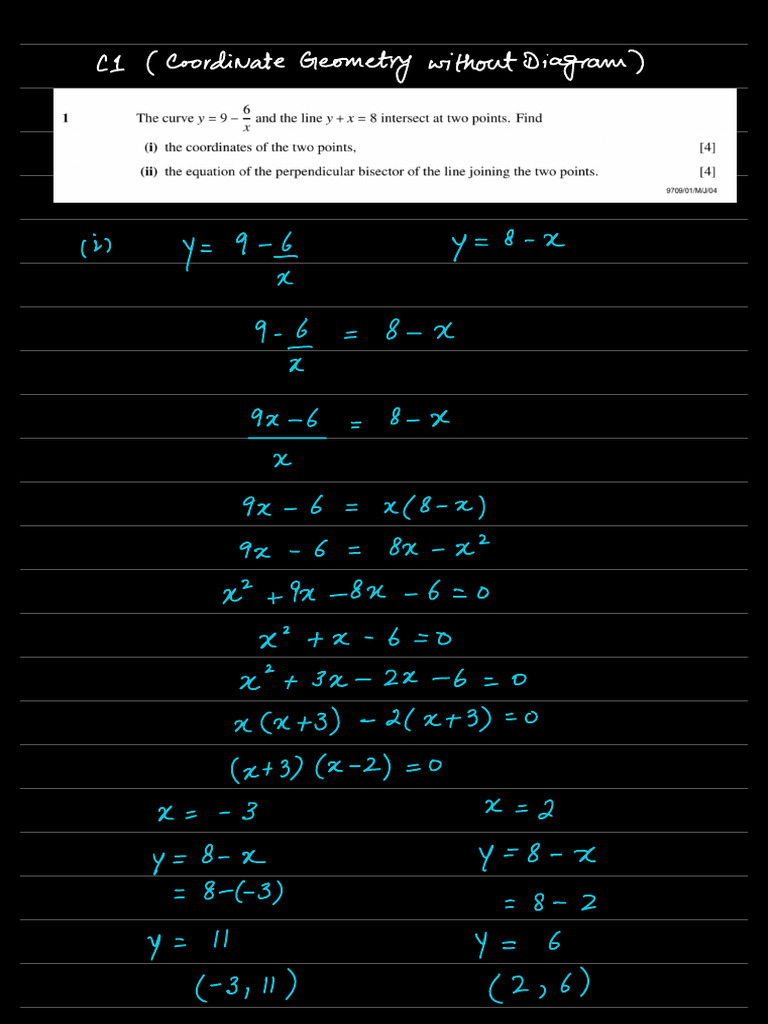 C1 (Coordinate Geometry without Diagram)
1 The curve y = 9 − 6/x and the line y + x = 8 intersect at two points. Find
(i) the coordinates of the two points, [4]
(ii) the equation of the perpendicular bisector of the line joining the two points. [4]
9709/01/M/J/04
(i) y = 9 − 6/x y = 8 − x
9 − 6/x = 8 − x
(9x − 6)/x = 8 − x
9x − 6 = x(8 − x)
9x − 6 = 8x − x²
x² + 9x − 8x − 6 = 0
x² + x − 6 = 0
x² + 3x − 2x − 6 = 0
x(x+3) − 2(x+3) = 0
(x+3) (x−2) = 0
x = −3 x = 2
y = 8 − x y = 8 − x
= 8−(−3) = 8 − 2
y = 11 y = 6
(−3, 11) (2, 6)